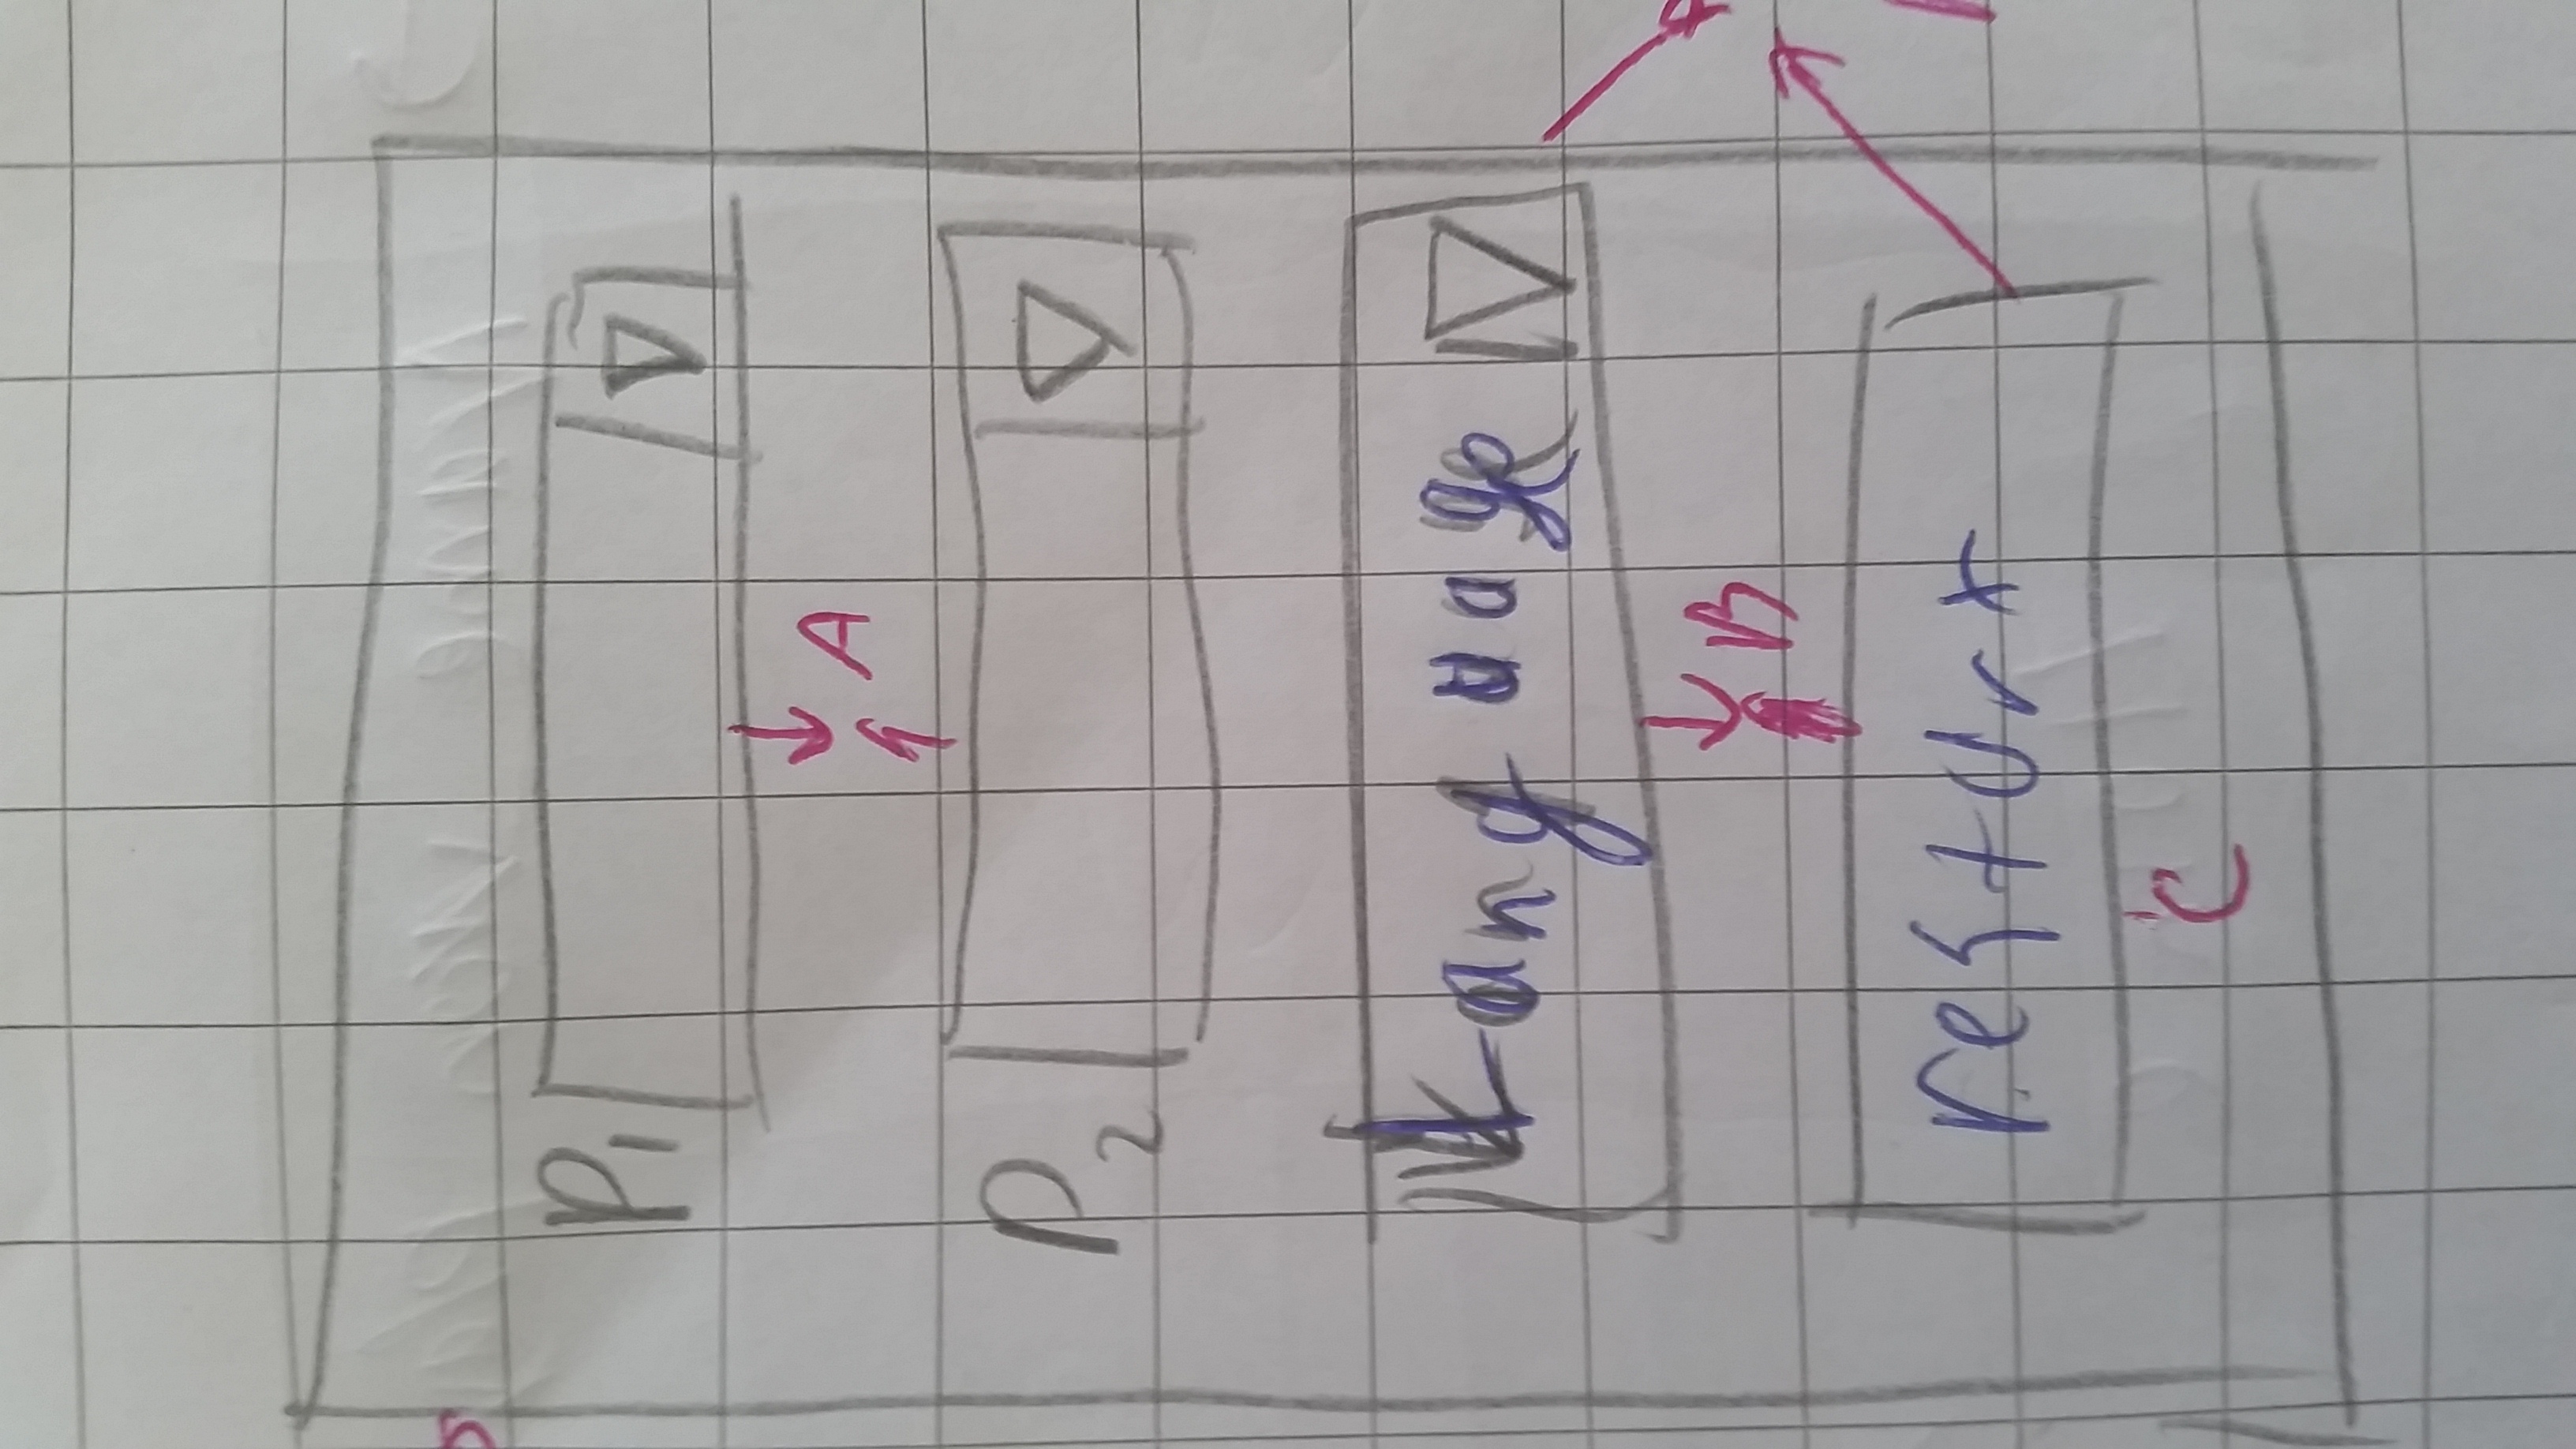 P1
A
P2
Language
B
restart
C